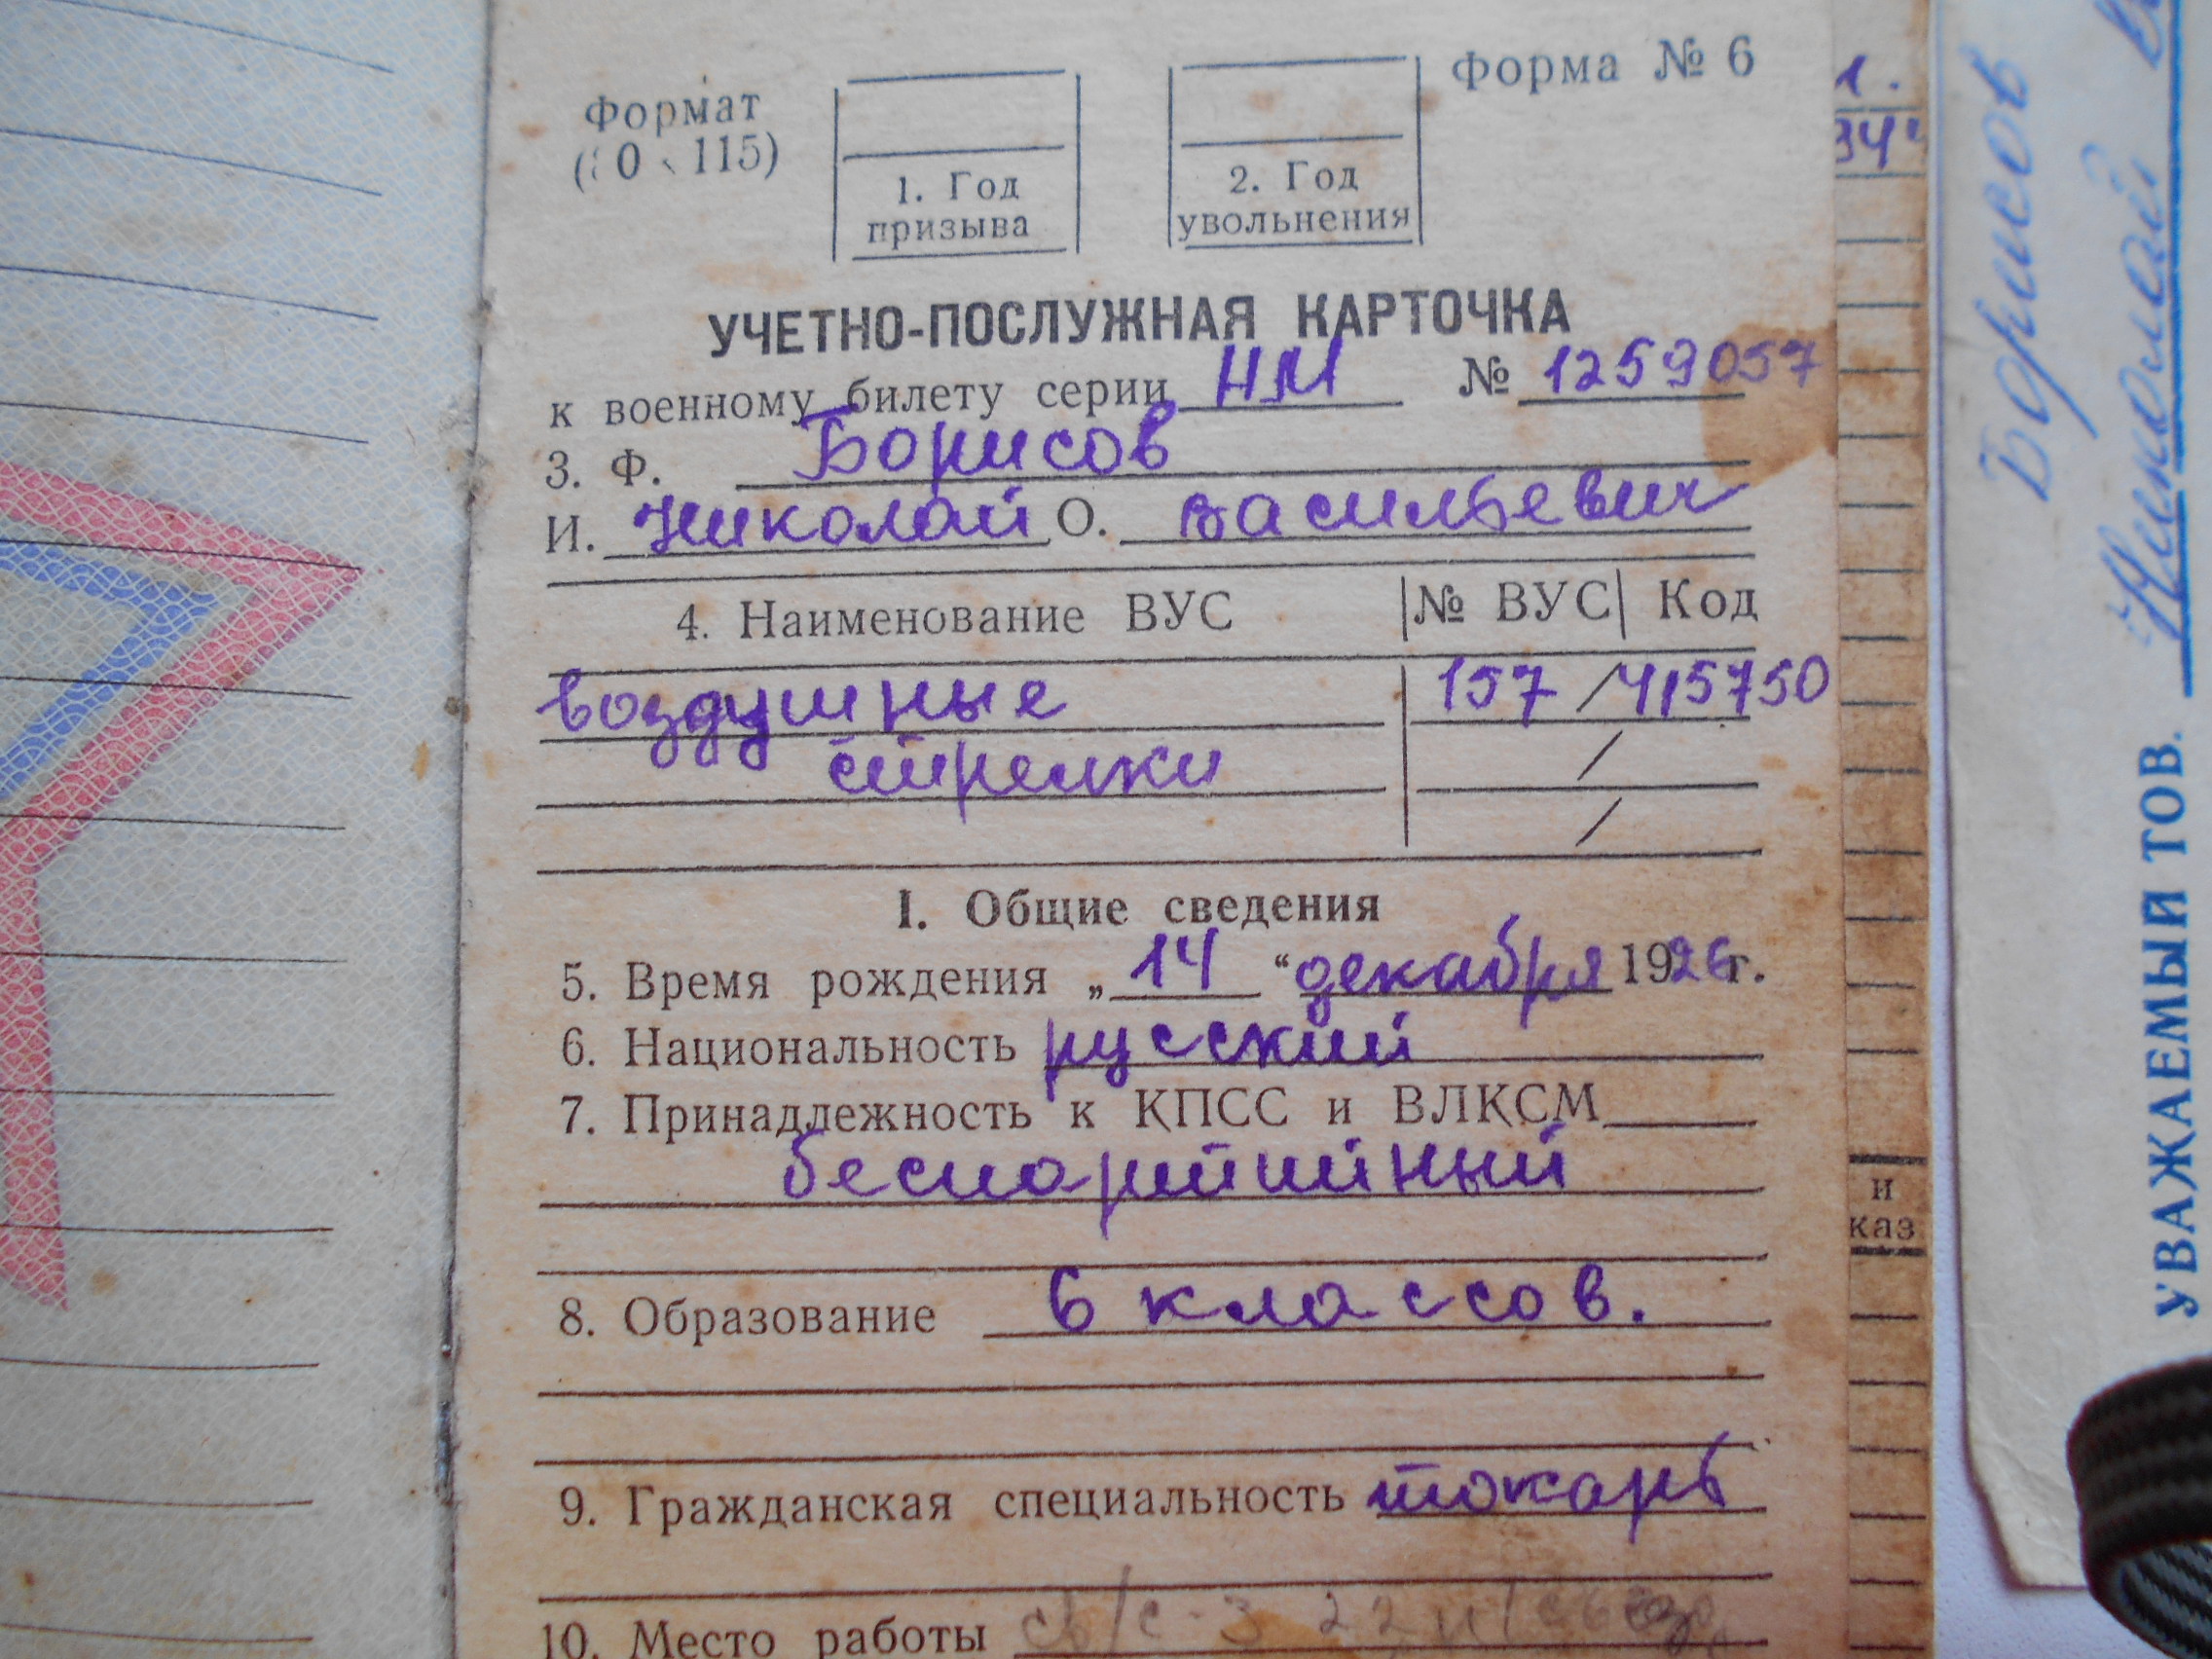 Форма № 6
Формат
115)
1. Год
призыва
2. Год
увольнения
УЧЕТНО-ПОСЛУЖНАЯ КАРТОЧКА
к военному билету серии НМ № 1259057
3. Ф. Борисов
И. Николай О. Васильевич
4. Наименование ВУС № ВУС Код
воздушные 157 / 415750
стрелки /
/
I. Общие сведения
5. Время рождения „ 14 “ декабря 1926 г.
6. Национальность русский
7. Принадлежность к КПСС и ВЛКСМ
беспартийный
8. Образование 6 классов.
9. Гражданская специальность токарь
10. Место работы
и
каз
Борисов
Николай
УВАЖАЕМЫЙ ТОВ.